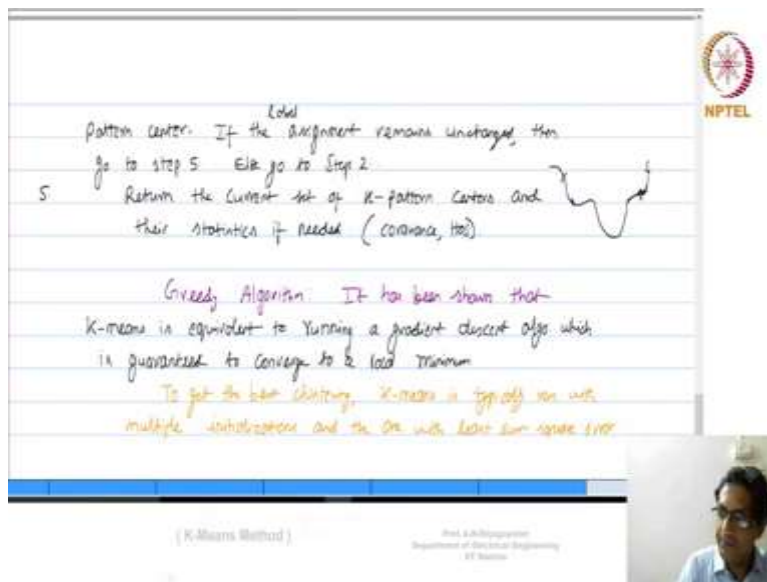 label
pattern center. If the assignment remains unchanged, then
go to step 5 Else go to Step 2
5 Return the current set of K-pattern centers and
their statistics if needed (covariance,
Greedy Algorithm. It has been shown that
K-means is equivalent to running a gradient descent algo which
is guaranteed to converge to a local minimum
To get the best clustering, K-means is typically run with
multiple initializations and the one with least sum square error
NPTEL
( K-Means Method )
Department of Electrical Engineering
IIT Madras